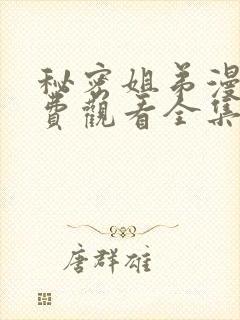 秘密姐弟漫
費觀看全集
唐群雄